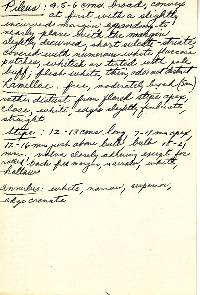 Pileus: 4.5-6 cms broad, convex
at first with a slightly
incurved margin expanding to
nearly plane with the margin
slightly decurved, short sulcate-striate,
covered with numerous white
patches, whitish or tinted with pale
buff; flesh white, thin, odor not distinct
Lamellae: free, moderately broad (5mm)
rather distant from flared stipe apex,
close, white, edges slightly fimbriate
straight
Stipe: 12-13 cms long, 7-9 mm apex,
12-16 mm just above bulb, bulb
mm, volva closely adhering except for
free margin, narrow, white,
hollow
Annulus: white, narrow, superior,
edge crenate